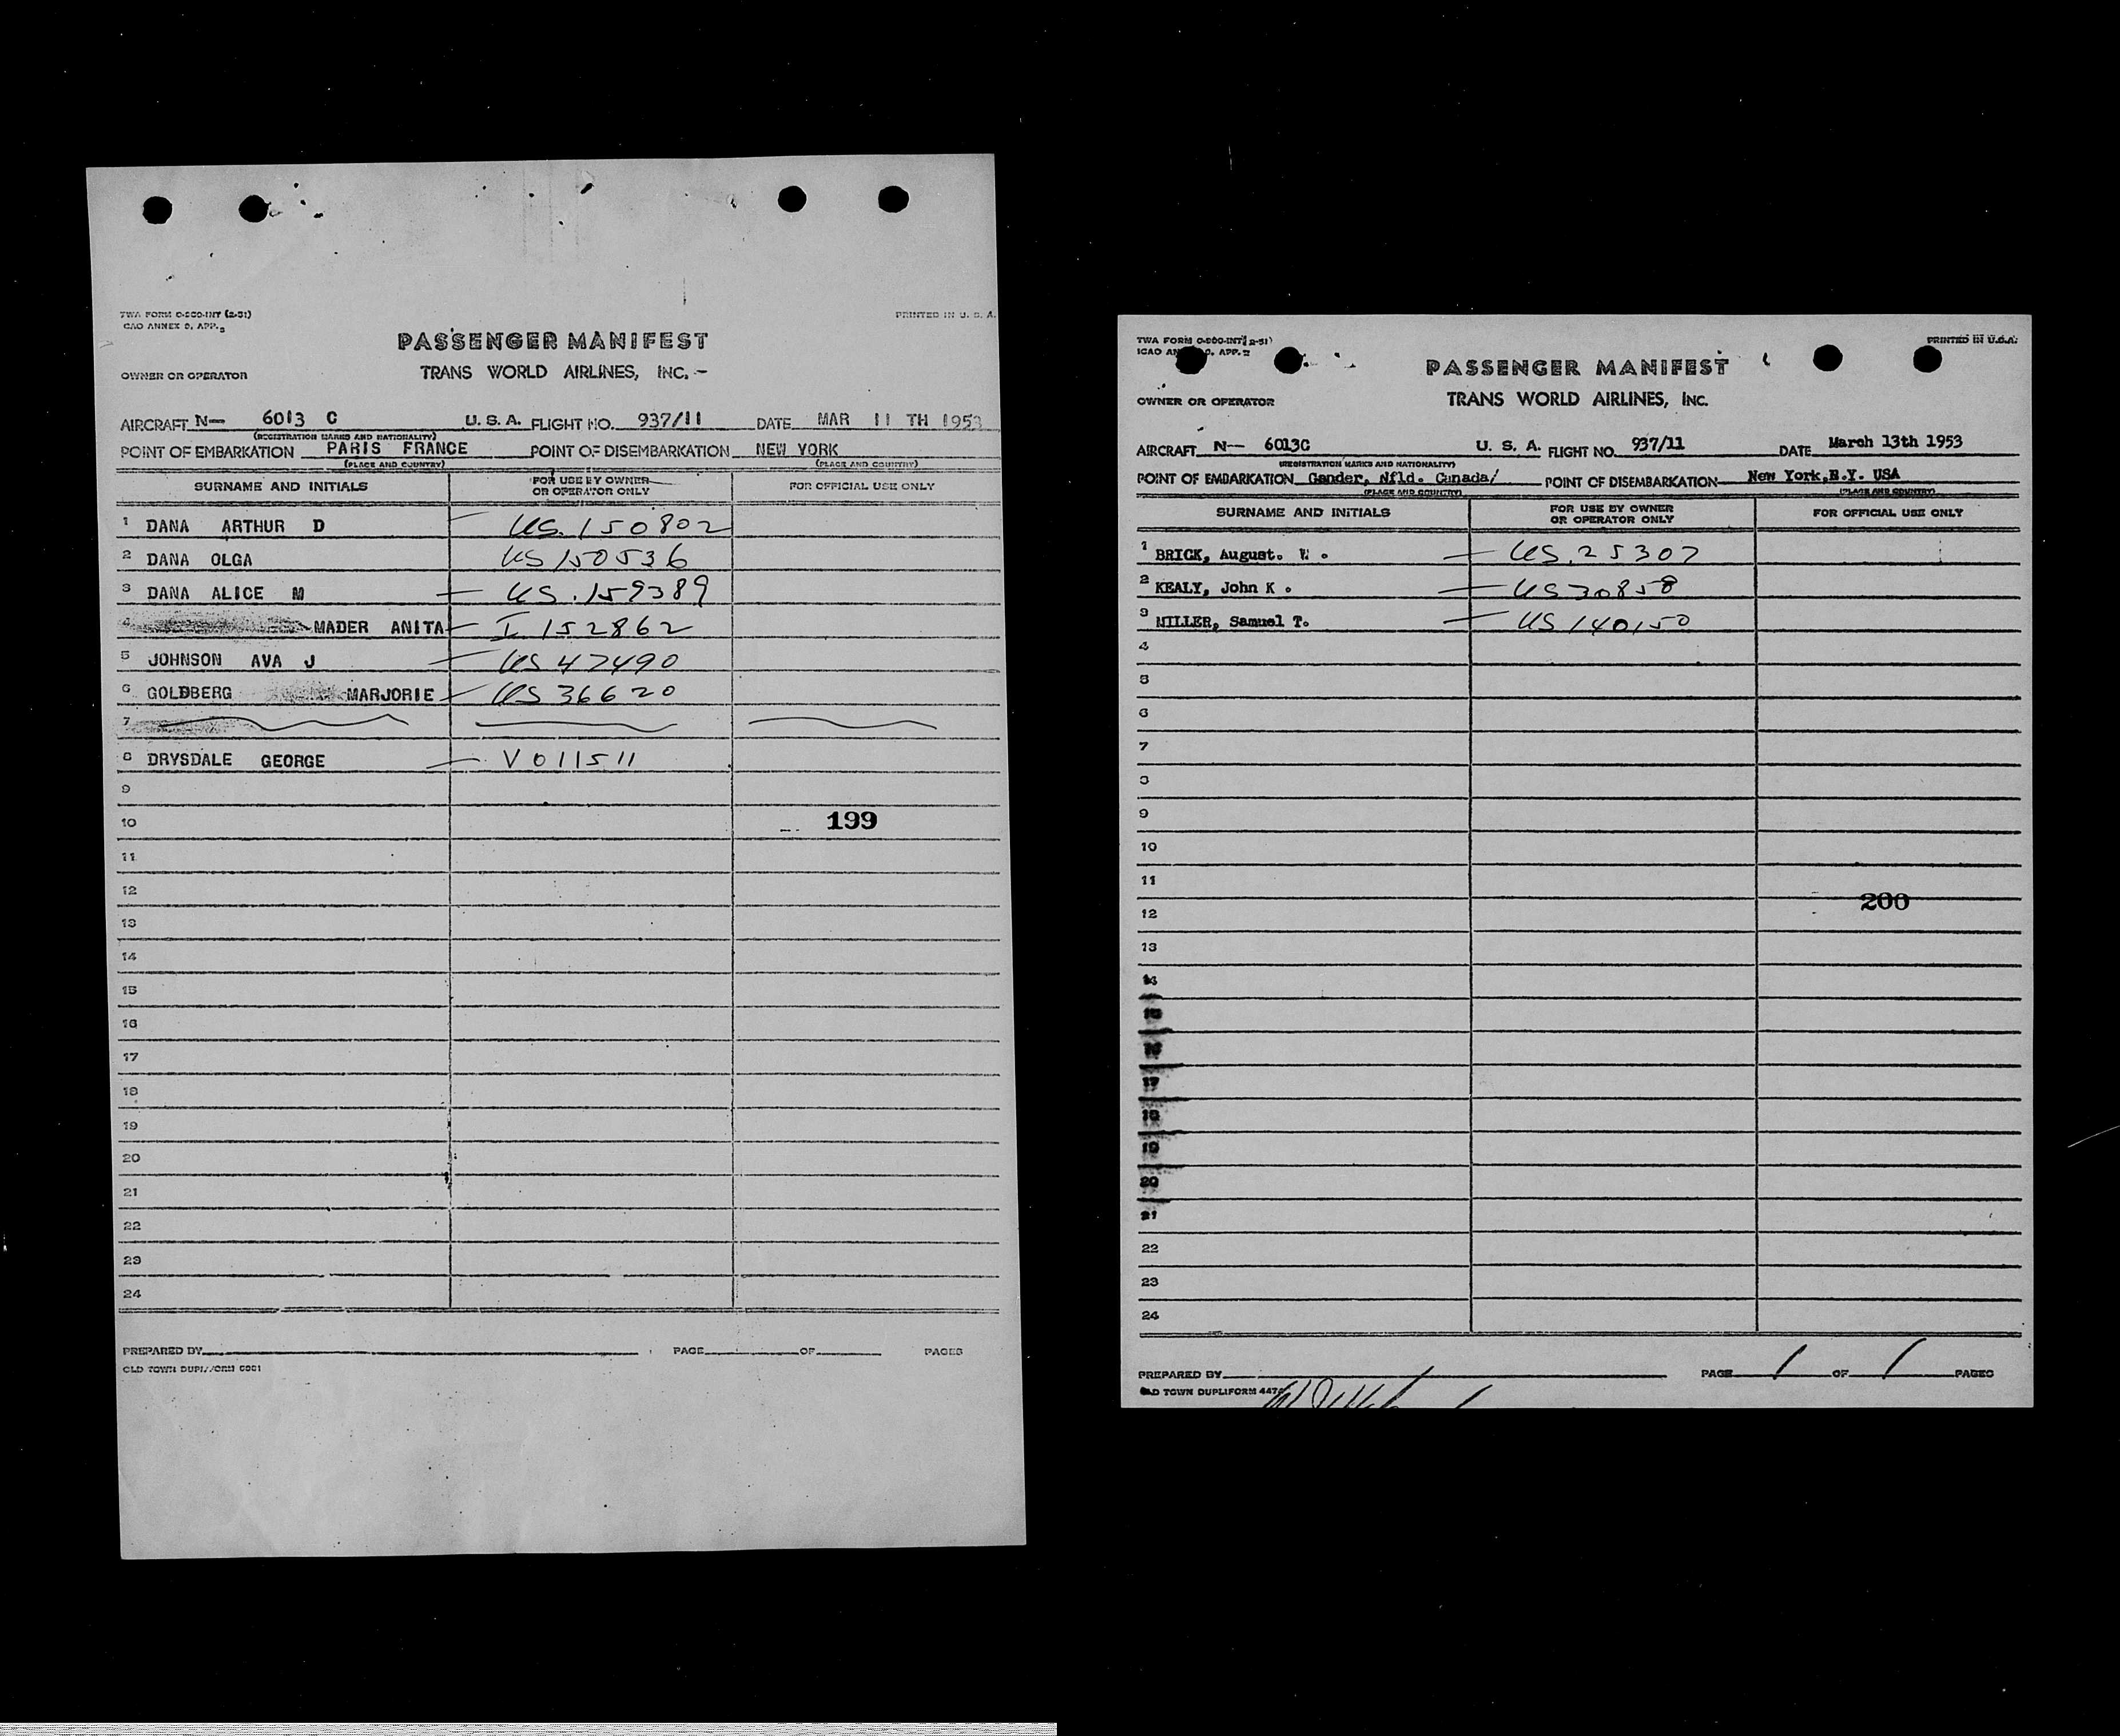 TWA FORM O-500-INT (2-51)
PRINTED IN U. S. A.
PASSENGER MANIFEST
OWNER OR OPERATOR
TRANS WORLD AIRLINES, INC.
AIRCRAFT N— 6013 C U. S. A. FLIGHT NO. 937/11 DATE MAR 11 TH 1953
(REGISTRATION MARKS AND NATIONALITY)
POINT OF EMBARKATION PARIS FRANCE POINT OF DISEMBARKATION NEW YORK
(PLACE AND COUNTRY) (PLACE AND COUNTRY)
SURNAME AND INITIALS FOR USE BY OWNER OR OPERATOR ONLY FOR OFFICIAL USE ONLY
1 DANA ARTHUR D US. 150802
2 DANA OLGA US 150536
3 DANA ALICE M — US. 159389
4 MADER ANITA — I 152862
5 JOHNSON AVA J — US 47490
6 GOLDBERG MARJORIE — US 36620
7
8 DRYSDALE GEORGE — V 011511
9
10 199
11
12
13
14
15
16
17
18
19
20
21
22
23
24
PREPARED BY PAGE OF PAGES
OLD TOWN
TWA FORM O-500-INT (2-51)
PRINTED IN U.S.A.
ICAO APP.
PASSENGER MANIFEST
OWNER OR OPERATOR
TRANS WORLD AIRLINES, INC.
AIRCRAFT N-- 6013C U. S. A. FLIGHT NO. 937/11 DATE March 13th 1953
(REGISTRATION MARKS AND NATIONALITY)
POINT OF EMBARKATION Gander, Nfld. Canada/ POINT OF DISEMBARKATION New York,N.Y. USA
(PLACE AND COUNTRY) (PLACE AND COUNTRY)
SURNAME AND INITIALS FOR USE BY OWNER OR OPERATOR ONLY FOR OFFICIAL USE ONLY
1 BRICK, August. W. — US. 25307
2 KEALY, John K. — US 30858
3 MILLER, Samuel T. — US 140150
4
5
6
7
8
9
10
11
12 200
13
14
15
16
17
18
19
20
21
22
23
24
PREPARED BY PAGE 1 OF 1 PAGES
OLD TOWN DUPLIFORM